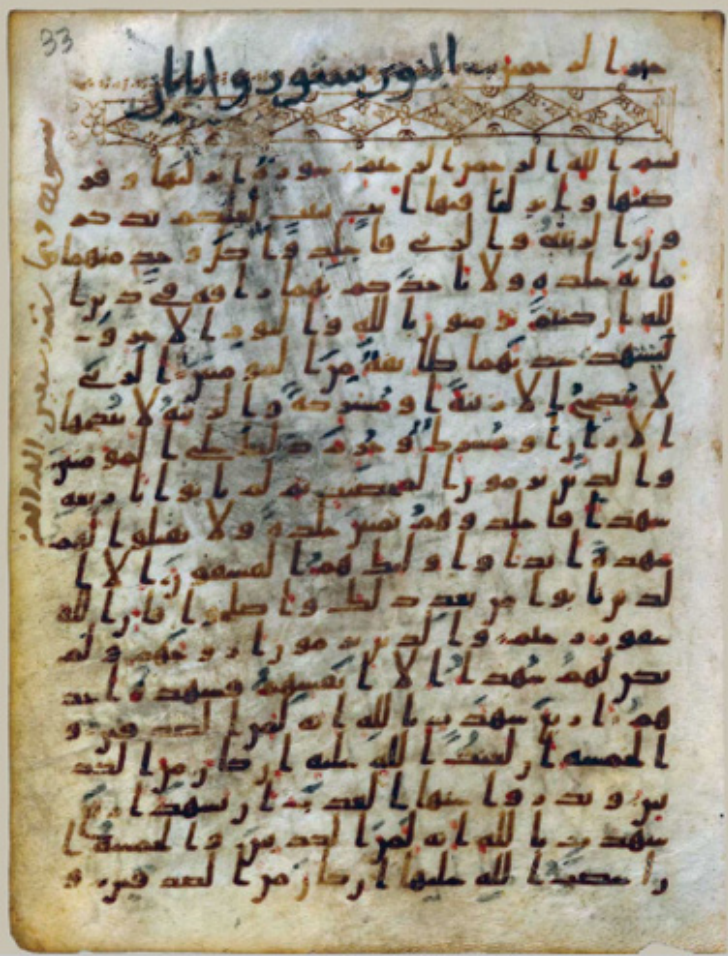 33
خير الرحمين
بسم الله الرحمن الرحيم سورة انزلنها و فر
ضنها و انزلنا فيها ايت بينت لعلكم تذكر
ون الزنية و الزني فاجلدوا كل وحد منهما
مائة جلدة ولا تاخذكم بهما رافة في دين ا
لله ان كنتم تومنون بالله و اليوم الاخر و
ليشهد عذبهما طائفة من المومنين الزني
لا ينكح الا زنية او مشركة و الزنية لا ينكحها
الا زان او مشرك و حرم ذلك على المومنين
و الذين يرمون المحصنت ثم لم ياتوا باربعة
شهدا فاجلدوهم ثمنين جلدة ولا تقبلوا لهم
شهدة ابدا و اولئك هم الفسقون الا ا
لذين تابوا من بعد ذلك و اصلحوا فان الله
غفور رحيم و الذين يرمون ازوجهم و لم
يكن لهم شهدا الا انفسهم فشهدة احد
هم اربع شهدت بالله انه لمن الصدقين و
الخمسة ان لعنت الله عليه ان كان من الكذ
بين و يدروا عنها العذب ان تشهد اربع
شهدت بالله انه لمن الكذبين و الخمسة ا
ن غضب الله عليها ان كان من الصدقين و